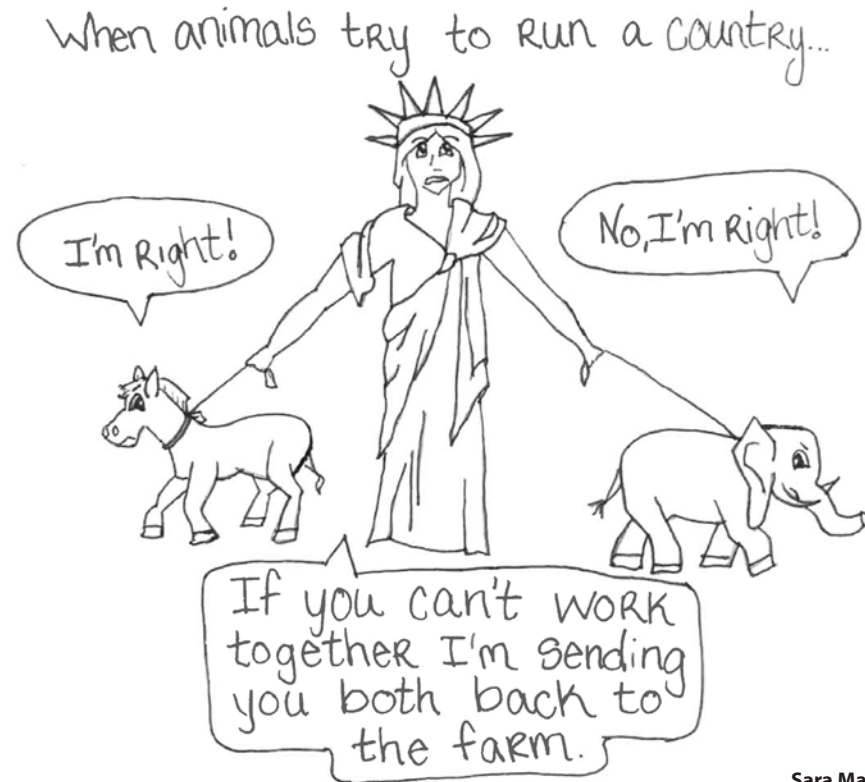 When animals try to run a country...
I'm Right!
No, I'm Right!
If you can't work
together I'm sending
you both back to
the farm.
Sara Ma